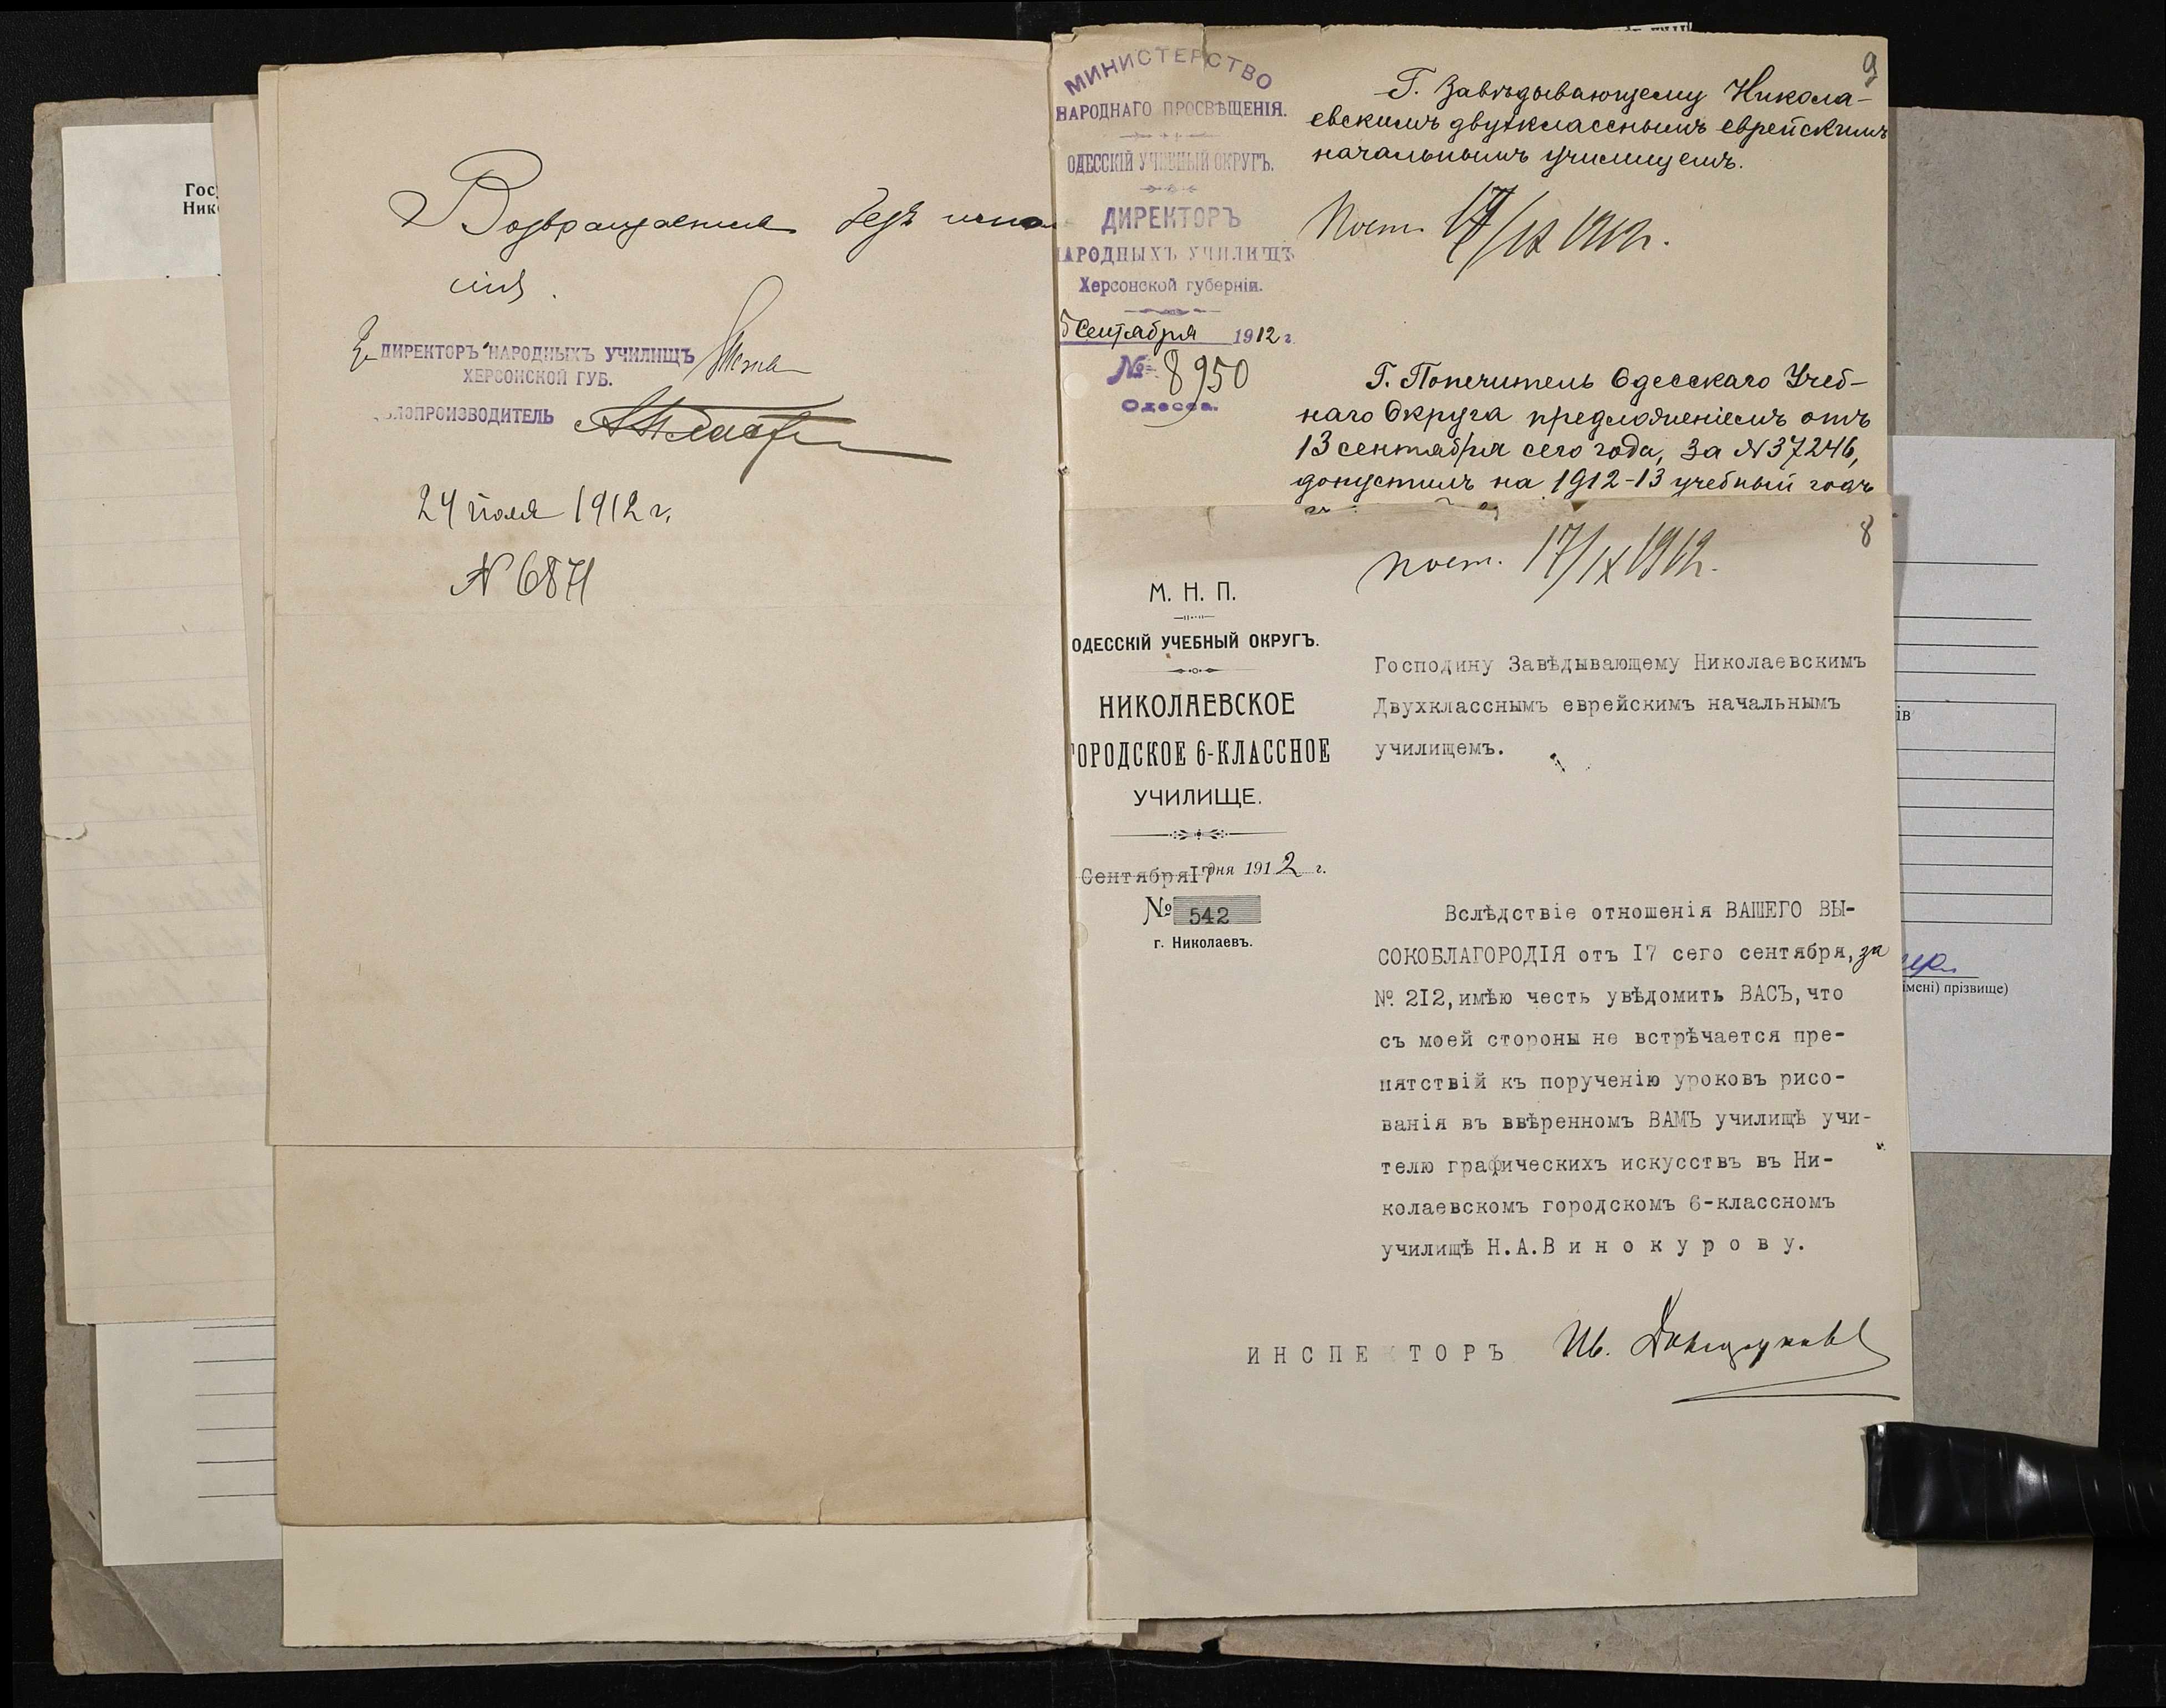 Возвращается безъ
нія.
ДИРЕКТОРЪ НАРОДНЫХЪ УЧИЛИЩЪ
ХЕРСОНСКОЙ ГУБ.
ЛОПРОИЗВОДИТЕЛЬ
24 июля 1912 г.
№ 6871
9
МИНИСТЕРСТВО
НАРОДНАГО ПРОСВѢЩЕНІЯ.
ОДЕССКІЙ УЧЕБНЫЙ ОКРУГЪ.
ДИРЕКТОРЪ
НАРОДНЫХЪ УЧИЛИЩЪ
Херсонской губерніи.
Сентября 1912 г.
№ 8950
Одесса.
Г. Завѣдывающему Никола-
евскимъ двухкласснымъ еврейскимъ
начальнымъ училищемъ.
Пост. /IX 1912 г.
Г. Попечитель Одесскаго Учеб-
наго Округа предложеніемъ отъ
13 сентября сего года, за № 37246,
допустилъ на 1912-13 учебный годъ
8
пост. 17/IX 1912 г.
М. Н. П.
ОДЕССКІЙ УЧЕБНЫЙ ОКРУГЪ.
НИКОЛАЕВСКОЕ
ГОРОДСКОЕ 6-КЛАССНОЕ
УЧИЛИЩЕ.
Сентября I7 дня 1912 г.
№ 542
г. Николаевъ.
Господину Завѣдывающему Николаевскимъ
Двухкласснымъ еврейскимъ начальнымъ
училищемъ.
Вслѣдствіе отношенія ВАШЕГО ВЫ-
СОКОБЛАГОРОДІЯ отъ I7 сего сентября, за
№ 2I2, имѣю честь увѣдомить ВАСЪ, что
съ моей стороны не встрѣчается пре-
пятствій къ порученію уроковъ рисо-
ванія въ ввѣренномъ ВАМЪ училищѣ учи-
телю графическихъ искусствъ въ Ни-
колаевскомъ городскомъ 6-классномъ
училищѣ Н.А.В и н о к у р о в у.
И Н С П Е К Т О Р Ъ Ив.
Гос
Ник
ів
імені) прізвище)